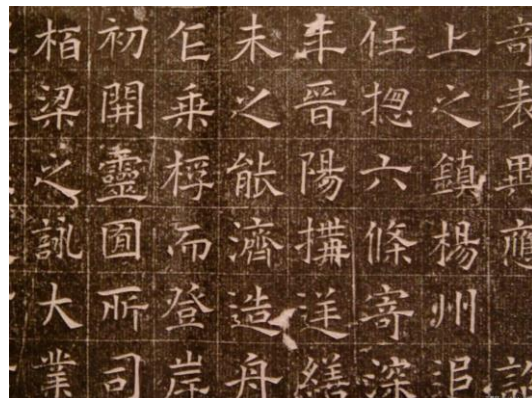 奇表異應
上之鎮楊州
任摠六條寄深
年晉陽搆逆繕
未之能濟造舟
乍乘桴而登岸
初開靈囿所司
栢梁之詠大業